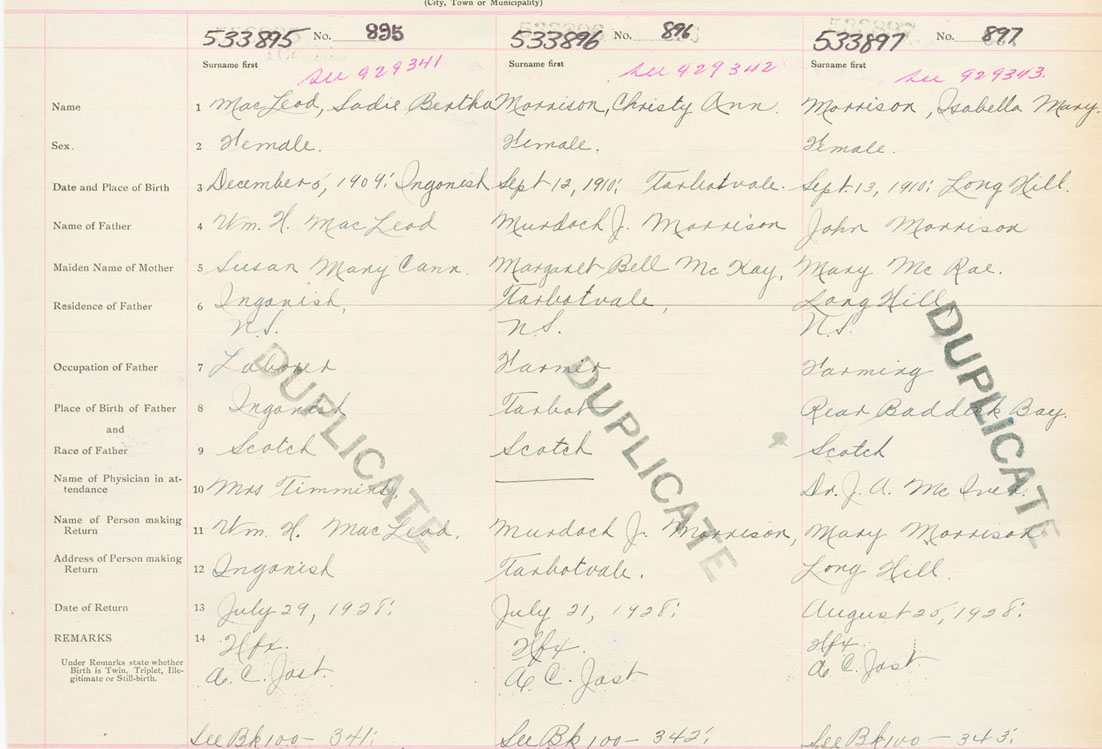 (City, Town or Municipality)
533895 No. 895 533896 No. 896 533897 No. 897
Surname first Surname first
See 929341 See 929342 See 929343.
Name 1 MacLeod, Sadie Bertha Morrison, Christy Ann Morrison, Isabella Mary.
Sex. 2 Female. Female. Female.
Date and Place of Birth 3 December 5, 1909: Ingonish Sept 12, 1910: Tarbotvale. Sept. 13, 1910: Long Hill.
Name of Father 4 Wm. H. MacLeod Murdoch J. Morrison John Morrison
Maiden Name of Mother 5 Susan Mary Cann. Margaret Bell McKay, Mary McRae.
Residence of Father 6 Ingonish, Tarbotvale, Long Hill
N.S. N.S. N.S.
Occupation of Father 7 Laborer Farmer Farming
Place of Birth of Father 8 Ingonish Tarbot Rear Baddeck Bay.
and
Race of Father 9 Scotch Scotch Scotch
Name of Physician in at-
tendance 10 Mrs Timmins. Dr. J. A. McIver.
Name of Person making
Return 11 Wm. H. MacLeod. Murdoch J. Morrison, Mary Morrison
Address of Person making
Return 12 Ingonish Tarbotvale. Long Hill.
Date of Return 13 July 29, 1928: July 21, 1928: August 25, 1928:
REMARKS 14 Hfx. Hfx. Hfx.
Under Remarks state whether
Birth is Twin, Triplet, Ille-
gitimate or Still-birth.
A. C. Jost. A. C. Jost A. C. Jost
See Bk 100 - 341: See Bk 100 - 342: See Bk 100 - 343:
DUPLICATE DUPLICATE DUPLICATE